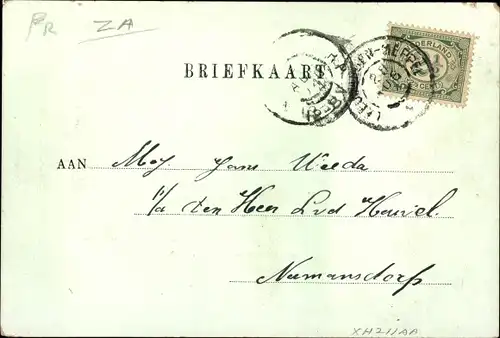 FR ZA
BRIEFKAART
NEDERLAND
AAN Mej Jans Weeda
p/a den Heer L v d Heuvel.
Numansdorp
XH211AA